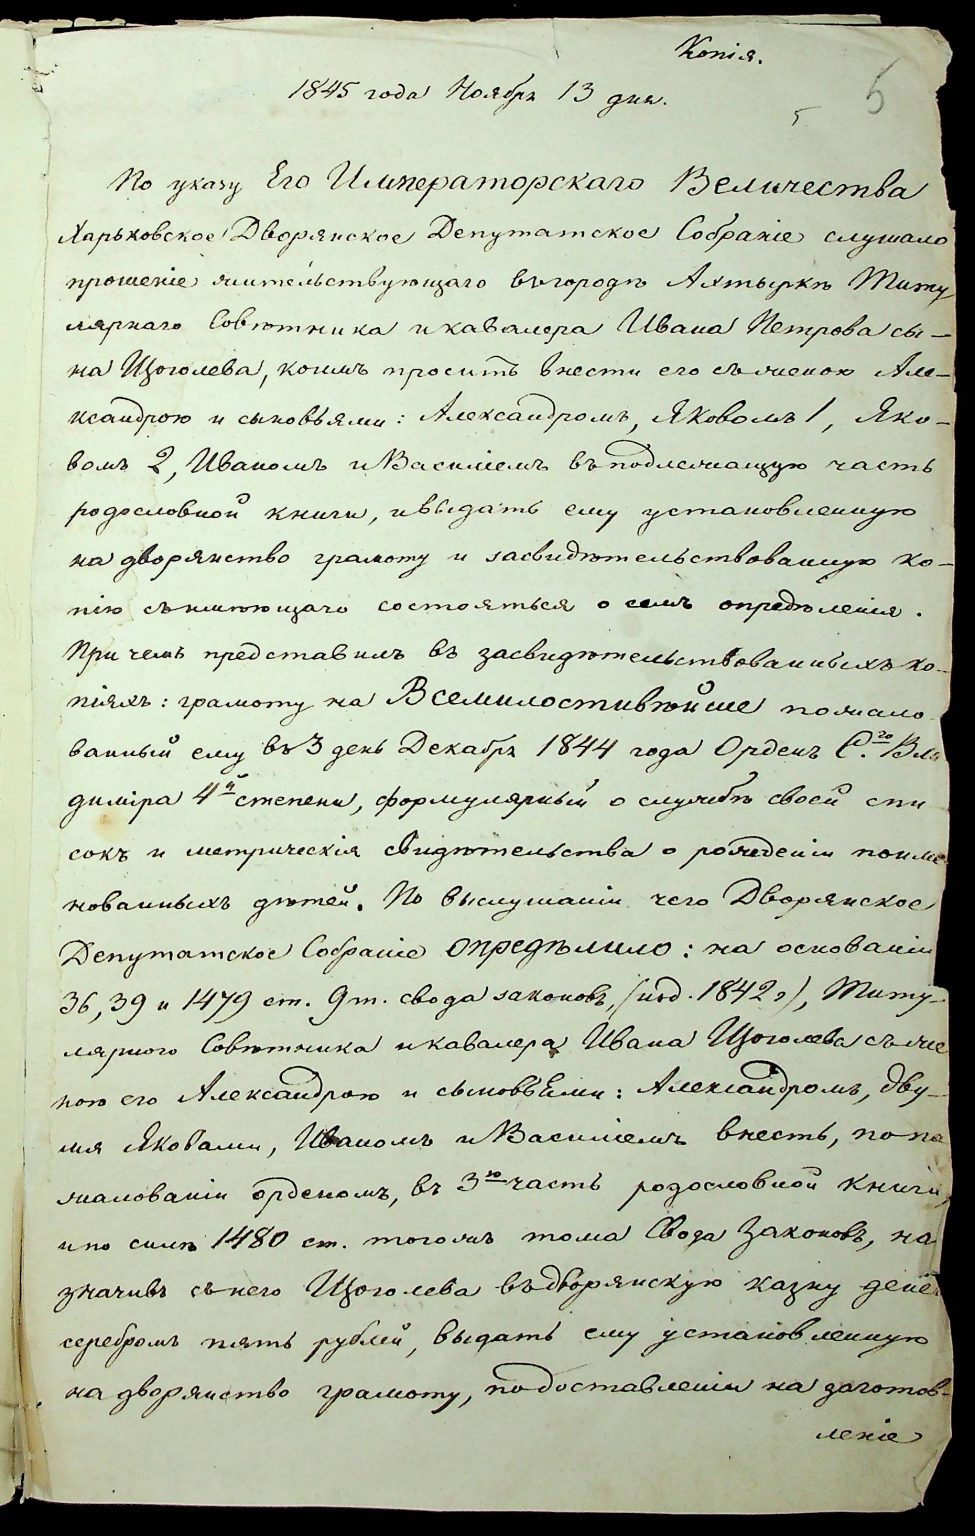 Копія.
5
1845 года Ноября 13 дня.
По указу Его Императорскаго Величества
Харьковское Дворянское Депутатское Собраніе слушало
прошеніе жительствующаго въ городѣ Ахтыркѣ Титу
лярнаго Совѣтника и кавалера Ивана Петрова сы-
на Щоголева, коимъ проситъ внести его съ женою Але-
ксандрою и сыновьями: Александромъ, Яковомъ 1, Яко-
вомъ 2, Иваномъ и Василіемъ въ подлежащую часть
родословной книги, и выдать ему установленную
на дворянство грамоту и засвидѣтельствованную ко-
пію съ имѣющаго состояться о семъ опредѣленія.
При чемъ представилъ въ засвидѣтельствованныхъ ко-
піяхъ: грамоту на Всемилостивѣйше пожало
ванный ему въ 3 день Декабря 1844 года Орденъ С.го Вла
диміра 4й степени, формулярный о службѣ своей спи
сокъ и метрическія свидѣтельства о рожденіи поиме
нованныхъ дѣтей. По выслушаніи чего Дворянское
Депутатское Собраніе опредѣлило: на основаніи
36, 39 и 1479 ст. 9 т. свода законовъ, (изд. 1842 г), Титу-
лярного Совѣтника и кавалера Ивана Щоголева съ же
ною его Александрою и сыновьями: Александромъ, дву-
мя Яковами, Иваномъ и Василіемъ внесть, по по
жалованіи орденомъ, въ 3ю часть родословной книги,
и по силѣ 1480 ст. тогожъ тома Свода Законовъ, на
значивъ съ него Щоголева въ дворянскую казну денегъ
серебромъ пять рублей, выдать ему установленную
на дворянство грамоту, по доставленіи на заготов-
леніе